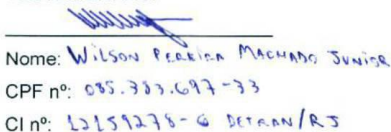 Nome: WILSON PEREIRA MACHADO JUNIOR
CPF nº: 085.383.697-33
CI nº: 12159278-6 DETRAN/RJ